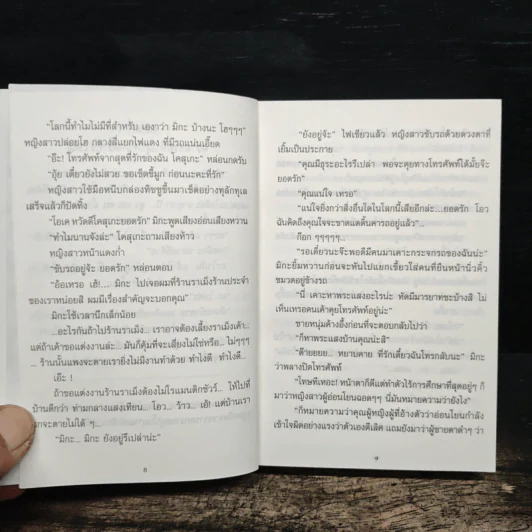 "โลกนี้ทำไมไม่มีที่สำหรับ เองาว่า มิกะ บ้างนะ โฮๆๆๆ"
หญิงสาวปล่อยโฮ กลางสี่แยกไฟแดง ที่มีรถแน่นเอี๊ยด
"อ๊ะ! โทรศัพท์จากสุดที่รักของฉัน โคสุเกะ" หล่อนกดรับ
"อุ้ย เดี๋ยวยังไม่สวย ขอเช็ดขี้มูก ก่อนนะคะที่รัก"
หญิงสาวใช้มือหนีบกล่องทิชชูขึ้นมาเช็ดอย่างทุลักทุเล
เสร็จแล้วก็ปัดทิ้ง
"โอเค หวัดดีโคสุเกะยอดรัก" มิกะพูดเสียงอ่อนเสียงหวาน
"ทำไมนานจังล่ะ" โคสุเกะถามเสียงห้าว
หญิงสาวหน้าแดงก่ำ
"ขับรถอยู่จ้ะ ยอดรัก" หล่อนตอบ
"อ๋อเหรอ เฮ้!... มิกะ ไปเจอผมที่ร้านราเม็งร้านประจำ
ของเราหน่อยสิ ผมมีเรื่องสำคัญจะบอกคุณ"
มิกะใช้เวลานึกเล็กน้อย
...อะไรกันถ้าไปร้านราเม็ง... เราอาจต้องเลี้ยงราเม็งเค้า...
แต่ถ้าเค้าขอแต่งงานล่ะ... มันก็คุ้มที่จะเสี่ยงไม่ใช่หรือ... ไม่ๆๆๆ
... ร้านนั้นแพงจะตายเรายิ่งไม่มีงานทำด้วย ทำไงดี ทำไงดี...
เอ๊ะ !
ถ้าขอแต่งงานร้านราเม็งต้องไม่โรแมนติกชัวร์... ให้ไปที่
บ้านดีกว่า ท่ามกลางแสงเทียน... โอว... ว้าว... เอ้! แต่บ้านเรา
รกจะตายไม่ได้ ๆ...
"มิกะ... มิกะ ยังอยู่รึเปล่าน่ะ"
8
"ยังอยู่จ้ะ" ไฟเขียวแล้ว หญิงสาวขับรถด้วยดวงตาที่
เยิ้มเป็นประกาย
"คุณมีธุระอะไรรึเปล่า พอจะคุยทางโทรศัพท์ได้มั้ยจ๊ะ
ยอดรัก"
"คุณแน่ใจ เหรอ"
"แน่ใจยิ่งกว่าสิ่งอื่นใดในโลกนี้เสียอีกล่ะ....ยอดรัก โอว
ฉันคิดถึงคุณใจจะขาดแด่ดิ้นคารถอยู่แล้ว"...
ก๊อก ๆๆๆๆๆ...
"รอเดี๋ยวนะจ๊ะพอดีมีคนมาเคาะกระจกรถของฉันน่ะ"
มิกะยิ้มหวานก่อนจะหันไปแยกเขี้ยวใส่คนที่ยืนหน้านิ่วคิ้ว
ขมวดอยู่ข้างรถ
"นี่ เคาะหาพระแสงอะไรน่ะ หัดมีมารยาทซะบ้างสิ ไม่
เห็นเหรอคนเค้าคุยโทรศัพท์อยู่น่ะ"
ชายหนุ่มค้างอึ้งก่อนที่จะตอบกลับไปว่า
"ก็หาพระแสงบ้านคุณน่ะสิ"
"ต๊ายยยย... หยาบคาย ที่รักเดี๋ยวฉันโทรกลับนะ" มิกะ
ว่าพลางปิดโทรศัพท์
"โทษทีเหอะ! หน้าตาก็ดีแต่ทำตัวไร้การศึกษาที่สุดอยู่ๆ ก็
มาว่าหญิงสาวผู้อ่อนโยนฉอดๆๆ นี่มันหมายความว่ายังไง"
"ก็หมายความว่าคุณผู้หญิงผู้ที่อ้างตัวว่าอ่อนโยนกำลัง
เข้าใจผิดอย่างแรงว่าตัวเองดีเลิศ แถมยังมาว่าผู้ชายตาดำๆ ว่า